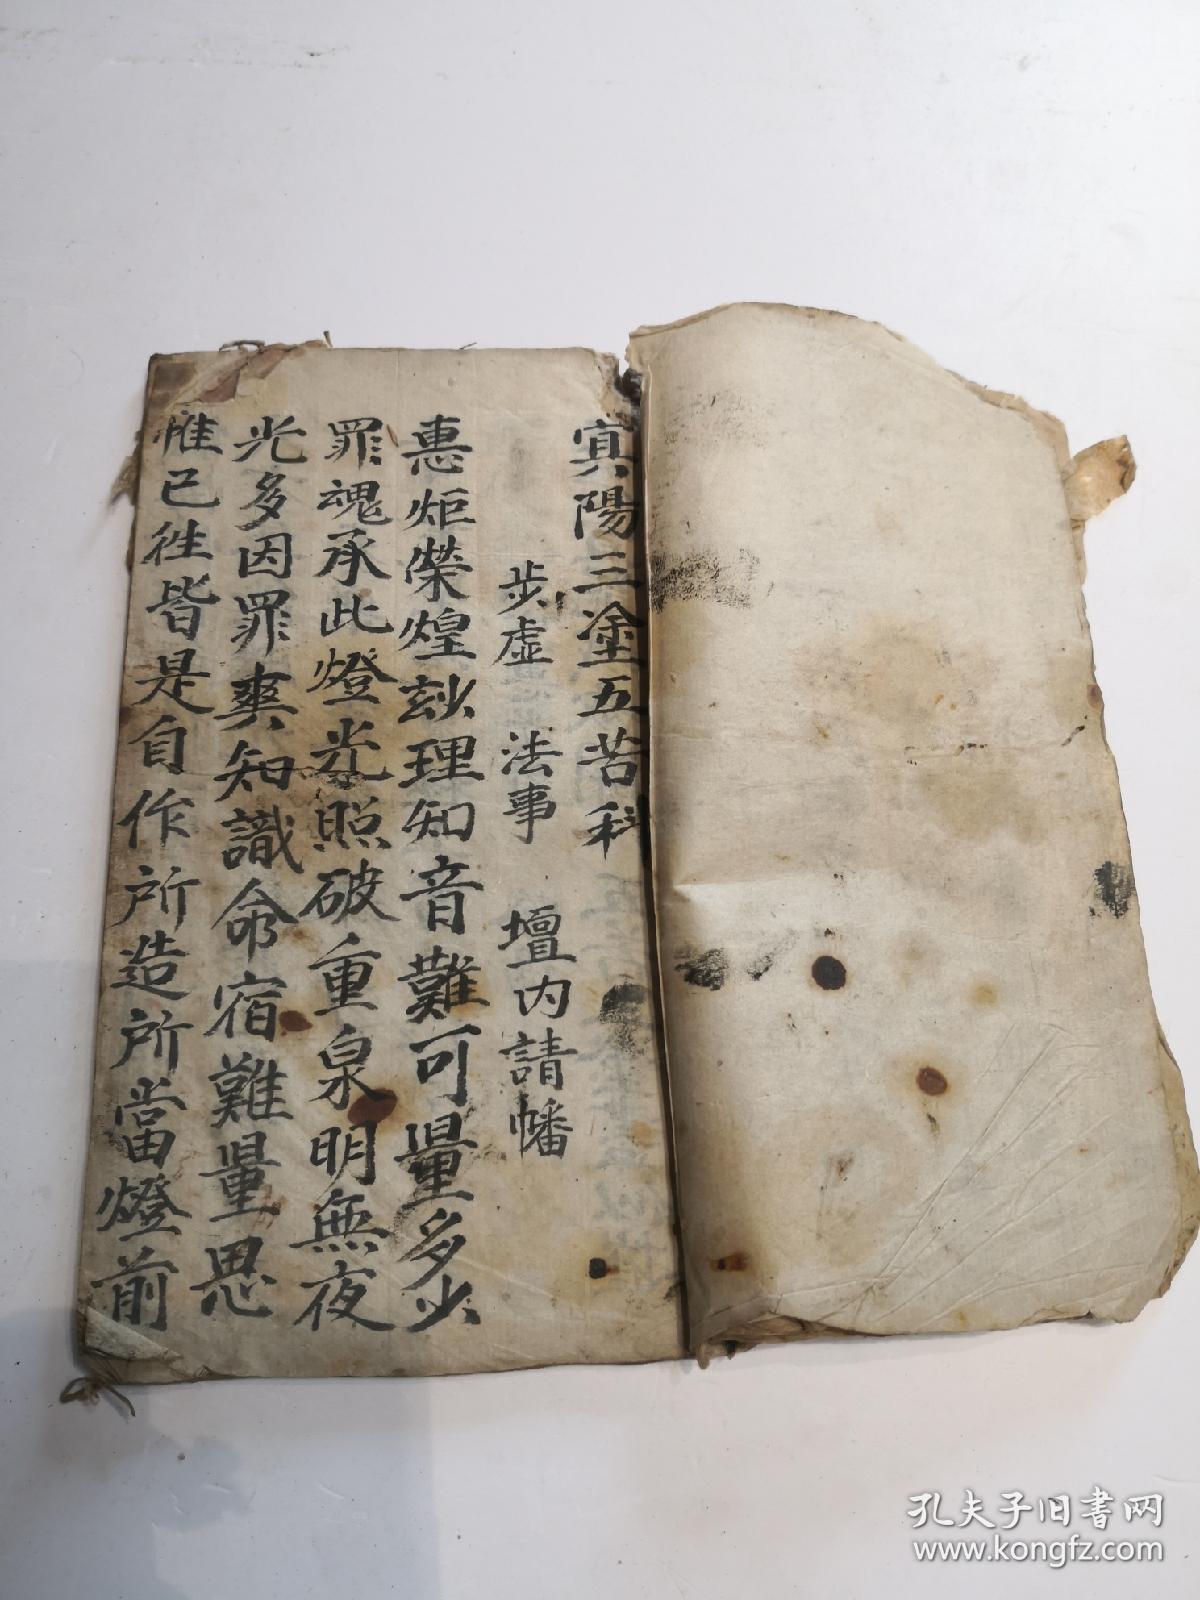 寘陽三塗五苦科
步虛 法事 壇內請幡
惠炬榮煌玅理知音難可量多少
罪魂承此燈光照破重泉明無夜
光多因罪爽知識命宿難量思
惟已徃皆是自作所造所當燈前
孔夫子旧书网
www.kongfz.com